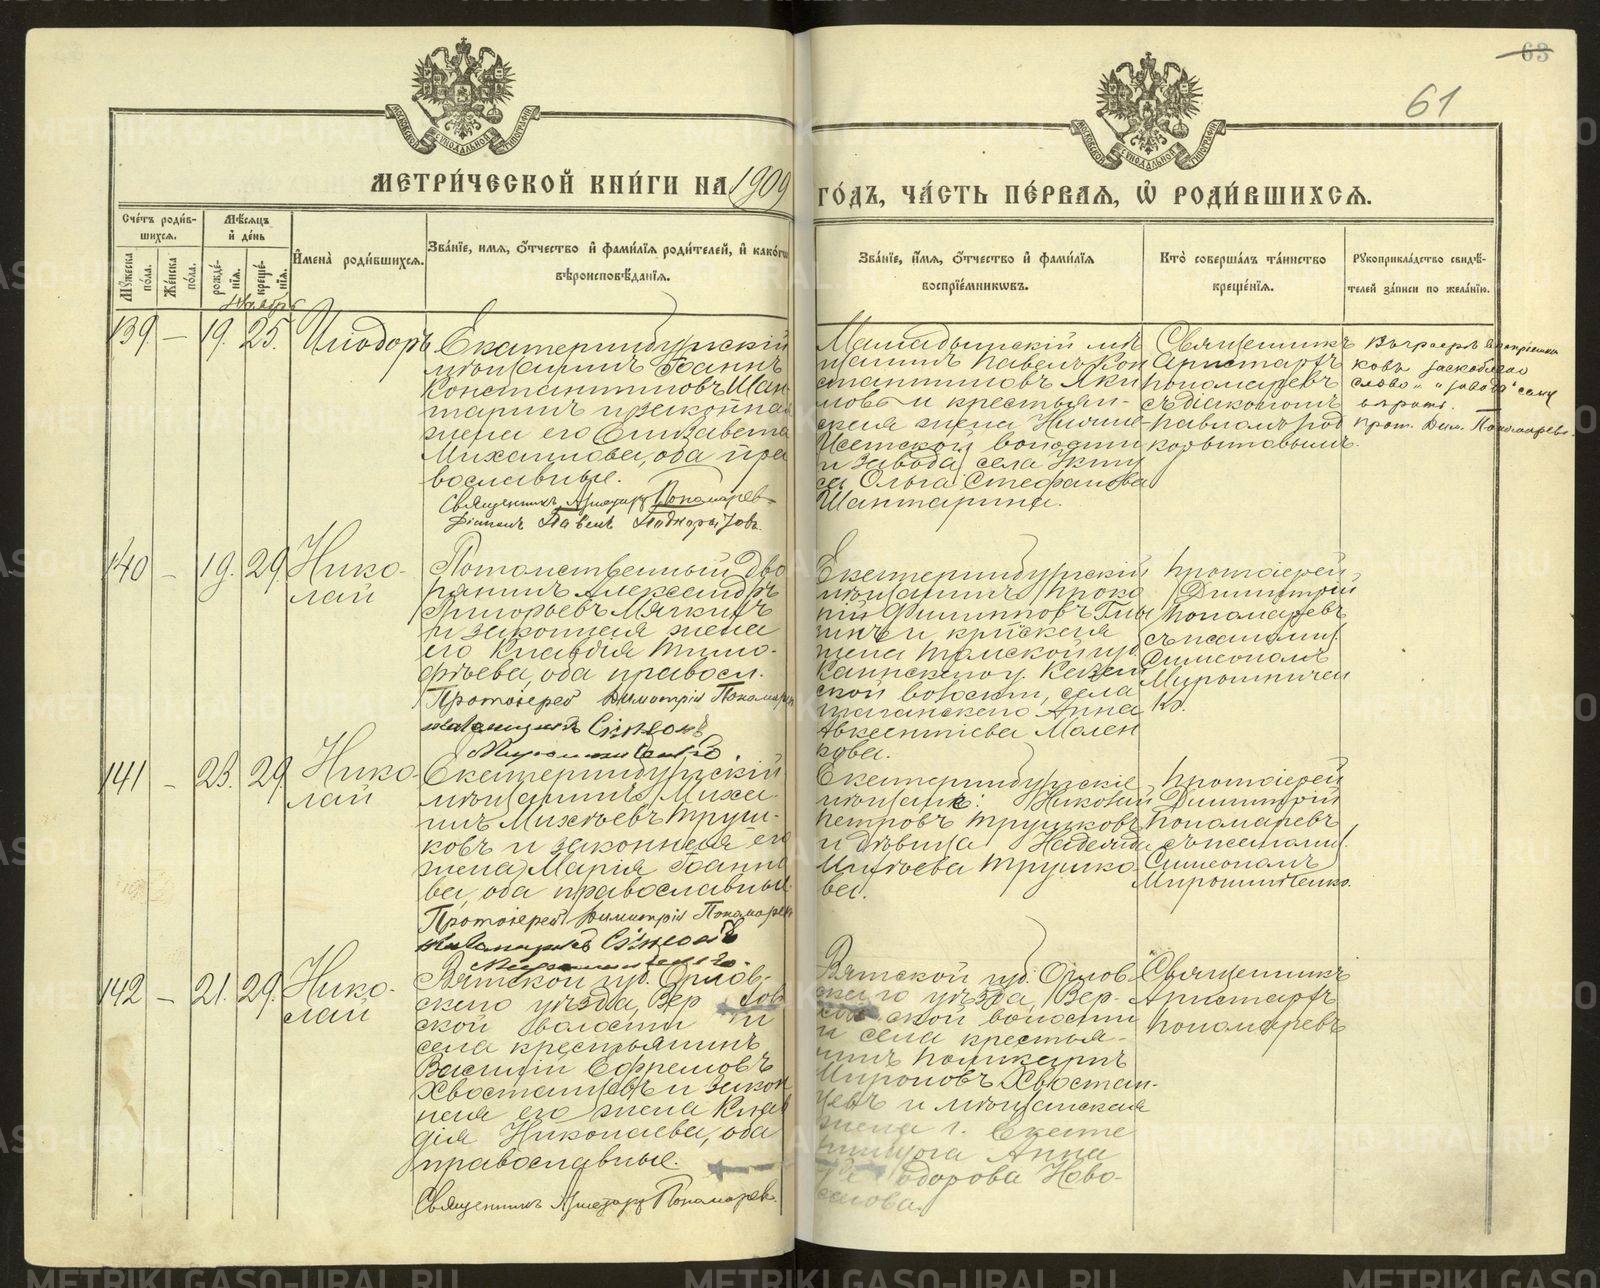 63
61
МЕТРИ́ЧЕСКОЙ КНИ́ГИ НА 1909 ГО́ДЪ, ЧА́СТЬ ПЕ́РВАЯ, Ѡ РОДИ́ВШИХСЯ.
Сче́тъ роди́в-
шихся.
Мѣ́сяцъ
и҆ де́нь
Му́жеска
по́ла.
Же́нска
по́ла.
рожде́-
нїя.
креще́-
нїя.
И҆мена̀ роди́вшихся.
Зва́нїе, и҆мя, ѻ҆́тчество и҆ фами́лїя роди́телей, и҆ како́гѡ
вѣроисповѣ́данїя.
Зва́нїе, и҆́мя, ѻ҆́тчество и҆ фами́лїя
воспрїе́мникѡвъ.
Кто̀ соверша́лъ та́инство
креще́нїя.
Рукоприкла́дство свидѣ́-
телей за́писи по жела́нїю.
Ноября
139 — 19. 25. Илiодоръ
Екатеринбургскiй
мѣщанинъ Iоаннъ
Константиновъ Шан-
таринъ и законная
жена его Елизавета
Михаилова, оба пра
вославные.
Священникъ Аристархъ Пономарев
Дiаконъ Павелъ Подкорытовъ.
Мамадышскiй мѣ
щанинъ Павелъ Кон
стантиновъ Яки
мовъ и крестьян-
ская жена Нижне-
Исетской волости
и завода, села Укту
са Ольга Стефанова
Шантарина.
Священникъ
Аристархъ
Пономаревъ
съ дiакономъ
Павломъ Под
корытовымъ.
Въ графѣ воспрiемни
ковъ заскоблено
слово „и завода" сему
вѣрить.
Прот. Дим. Пономаревъ.
140 — 19. 29. Нико-
лай
Потомственный дво
рянинъ Александръ
Григорьевъ Мягкихъ
и законная жена
его Клавдiя Тимо-
феева, оба правосл.
Протоiерей Димитрiй Пономаревъ
псаломщикъ Симеонъ
Мирошниченко.
Екатеринбургскiй
мѣщанинъ Проко
пiй Филипповъ
и кр-ская
жена Томской губ.
Каинскаго у. Казан
ской волости, села
Анна
Авксентiева Мален
кова.
Протоiерей
Димитрiй
Пономаревъ
съ псаломщ.
Симеономъ
Мирошничен
ко.
141 — 23. 29. Нико-
лай
Екатеринбургскiй
мѣщанинъ Миха-
илъ Михѣевъ Труш-
ковъ и законная его
жена Марiя Iоанно
ва, оба православные.
Протоiерей Димитрiй Пономаревъ
псаломщикъ Симеонъ
Мирошниченко.
Екатеринбургскiе
мѣщане: Николай
Петровъ Трушковъ
и дѣвица Надежда
Михѣева Трушко-
ва.
Протоiерей
Димитрiй
Пономаревъ
съ псаломщ.
Симеономъ
Мирошниченко.
142 — 21. 29. Нико-
лай
Вятской губ. Орлов-
скаго уѣзда, Вер хов
ской волости и
села крестьянинъ
Василiй Ефремовъ
Хвостанцевъ и закон
ная его жена Клав
дiя Николаева, оба
православные.
Священникъ Аристархъ Пономарев.
Вятской губ. Орлов-
скаго уѣзда, Вер-
хов ской волости
и села крестья-
нинъ Поликарпъ
Мироновъ Хвостан-
цевъ и мѣщанская
жена г. Екате
ринбурга Анна
Ѳе одорова Ново-
селова.
Священникъ
Аристархъ
Пономаревъ